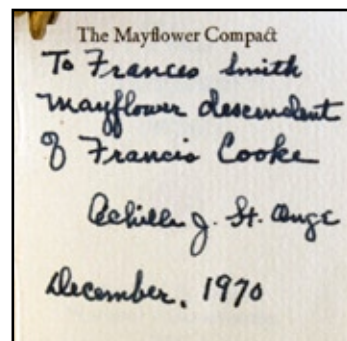 The Mayflower Compact
To Frances Smith
Mayflower descendent
of Francis Cooke
Achille J. St. Onge
December, 1970